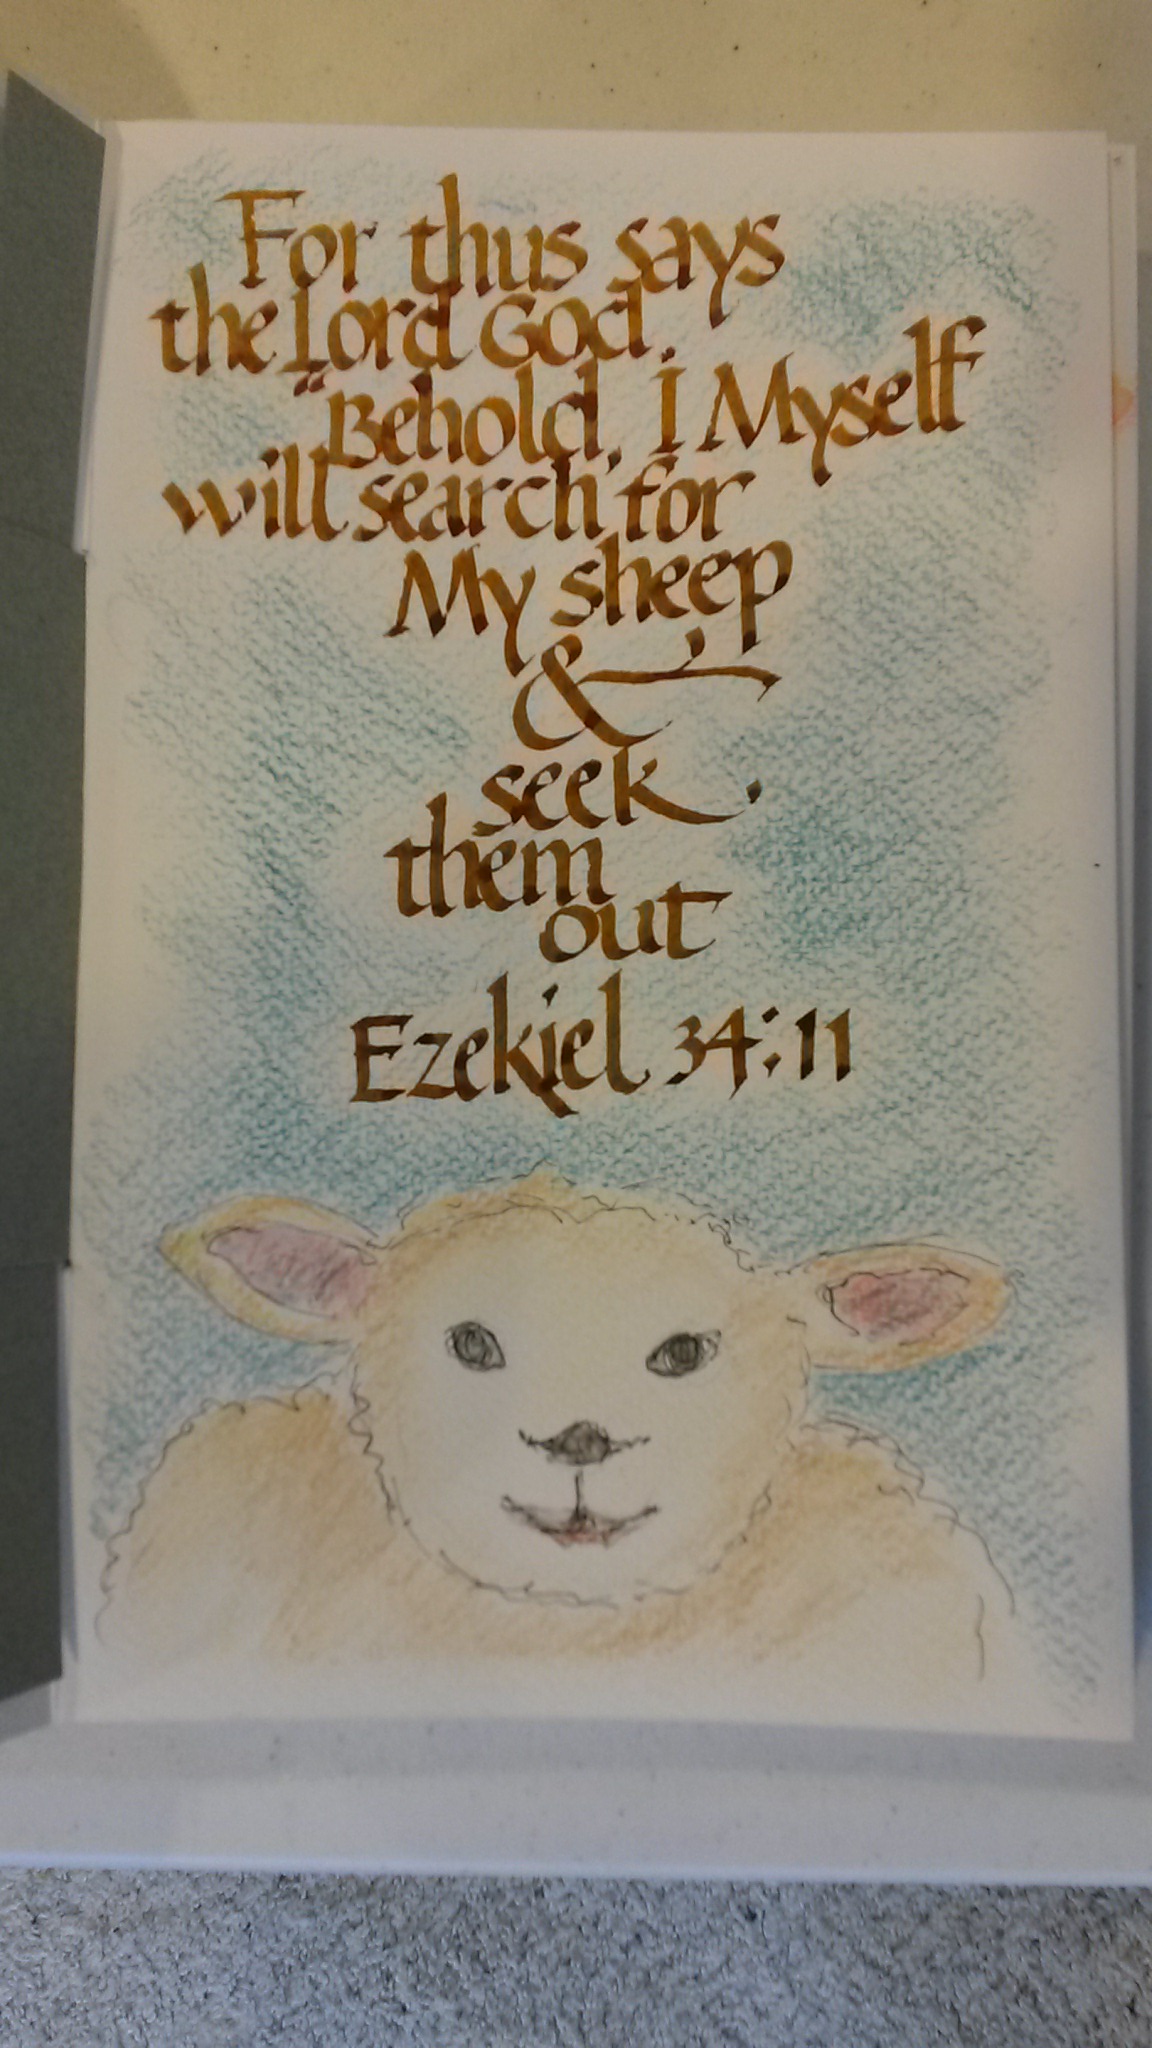 For thus says
the Lord God,
"Behold, I Myself
will search for
My sheep
&
seek
them
out
Ezekiel 34:11